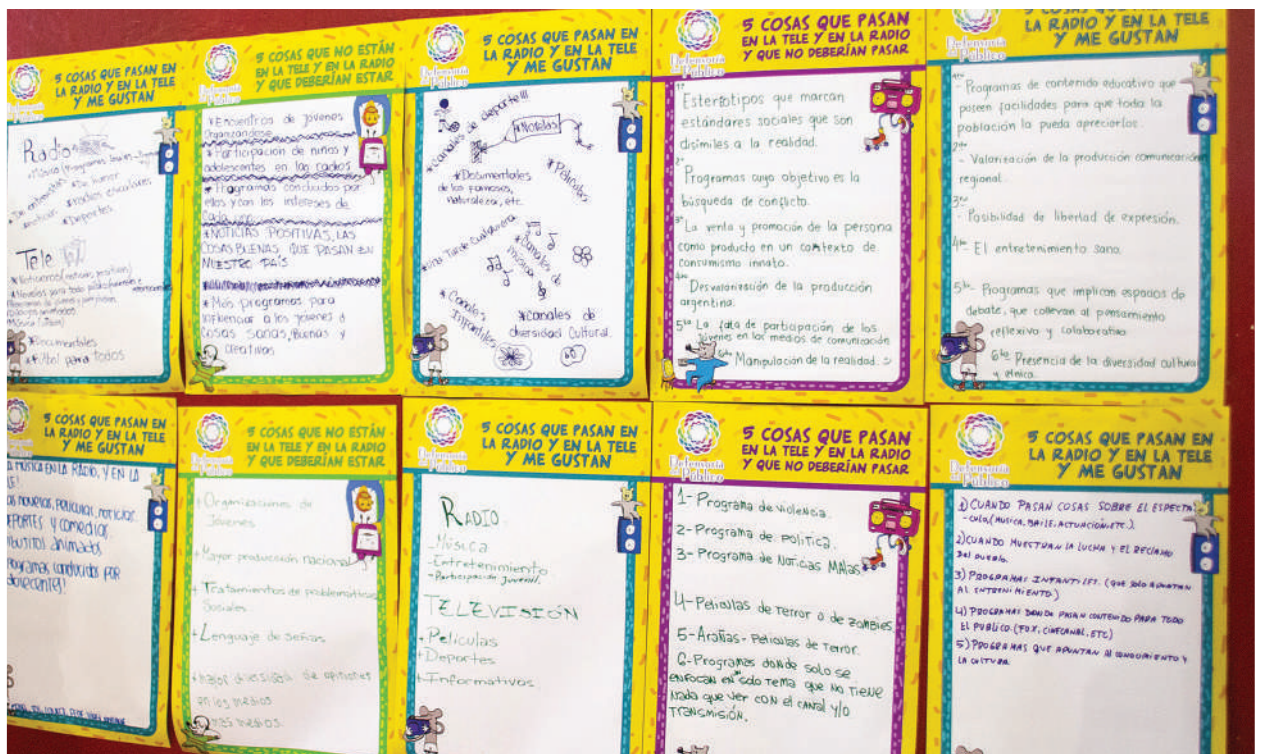 5 COSAS QUE PASAN EN
LA RADIO Y EN LA TELE
Y ME GUSTAN
Radio
*Música
*De humor
*Deportes
Tele
*Documentales
para todos
Defensoría
del Público
5 COSAS QUE NO ESTÁN
EN LA TELE Y EN LA RADIO
Y QUE DEBERÍAN ESTAR
*Encuentros de jovenes
Organizandose
*Participación de niños y
adolescentes en las radios
*Programas conducidos por
ellos y con los intereses de
cada uno
*NOTICIAS POSITIVAS, LAS
COSAS BUENAS QUE PASAN EN
NUESTRO PAÍS
*Más programas para
influenciar a los jovenes a
cosas sanas, buenas y
creativas
Defensoría
del Público
5 COSAS QUE PASAN EN
LA RADIO Y EN LA TELE
Y ME GUSTAN
*Canales de deporte!!!
*Novelas
*Peliculas
*Documentales
de los famosos,
naturaleza, etc.
*Canales de
música
*Canales
Infantiles
*Canales de
diversidad Cultural.
Defensoría
del Público
5 COSAS QUE PASAN
EN LA TELE Y EN LA RADIO
Y QUE NO DEBERÍAN PASAR
1º
Esterotipos que marcan
estándares sociales que son
disímiles a la realidad.
2º
Programas cuyo objetivo es la
búsqueda de conflicto.
3º
La venta y promoción de la persona
como producto en un contexto de
consumismo innato.
4to
Desvalorización de la producción
argentina.
5to La falta de participación de los
jóvenes en los medios de comunicación
6to Manipulación de la realidad.
Defensoría
del Público
5 COSAS QUE PASAN EN
LA RADIO Y EN LA TELE
Y ME GUSTAN
1ro
- Programas de contenido educativo que
poseen facilidades para que toda la
población la pueda apreciarlos.
2do
- Valorización de la producción comunicación
regional.
3ro
- Posibilidad de libertad de expresión.
4to - El entretenimiento sano.
5to - Programas que implican espacios de
debate, que collevan al pensamiento
reflexivo y colaborativo
6to Presencia de la diversidad cultura
y etnica.
5 COSAS QUE PASAN EN
LA RADIO Y EN LA TELE
Y ME GUSTAN
A MÚSICA EN LA RADIO, Y EN LA
LE!
AS novelas, Peliculas, noticias.
EPORTES y comedias
animados
rogramas conducidos por
Defensoría
del Público
5 COSAS QUE NO ESTÁN
EN LA TELE Y EN LA RADIO
Y QUE DEBERÍAN ESTAR
+Organizaciones de
Jóvenes
+Mayor producción nacional
+Tratamientos de problemáticas
Sociales.
+Lenguaje de Señas
+Mayor diversidad de opiniones
en los medios
Defensoría
del Público
5 COSAS QUE PASAN EN
LA RADIO Y EN LA TELE
Y ME GUSTAN
RADIO
-Música
-Entretenimiento
-Participación Juvenil.
TELEVISIÓN
+Películas
+Deportes
+Informativos
Defensoría
del Público
5 COSAS QUE PASAN
EN LA TELE Y EN LA RADIO
Y QUE NO DEBERÍAN PASAR
1-Programa de violencia.
2-Programa de política.
3-Programa de Noticias Malas.
4-Peliculas de terror o de zombies
5-Arañas-Peliculas de Terror.
6-Programas donde solo se
enfocan en solo tema que no tiene
nada que ver con el canal y/o
transmisión.
Defensoría
del Público
5 COSAS QUE PASAN EN
LA RADIO Y EN LA TELE
Y ME GUSTAN
1) CUANDO PASAN COSAS SOBRE EL ESPECTA
-culo, (MUSICA, BAILE, ACTUACIÓN, ETC.).
2) CUANDO MUESTRAN LA LUCHA Y EL RECLAMO
DEL PUEBLO.
3) PROGRAMAS INFANTILES. (QUE SOLO APUNTAN
AL ENTRENIMIENTO)
4) PROGRAMAS DONDE PASAN CONTENIDO PARA TODO
EL PUBLICO. (FOX, CINECANAL, ETC)
5) PROGRAMAS QUE APUNTAN AL CONOCIMIENTO Y
LA CULTURA